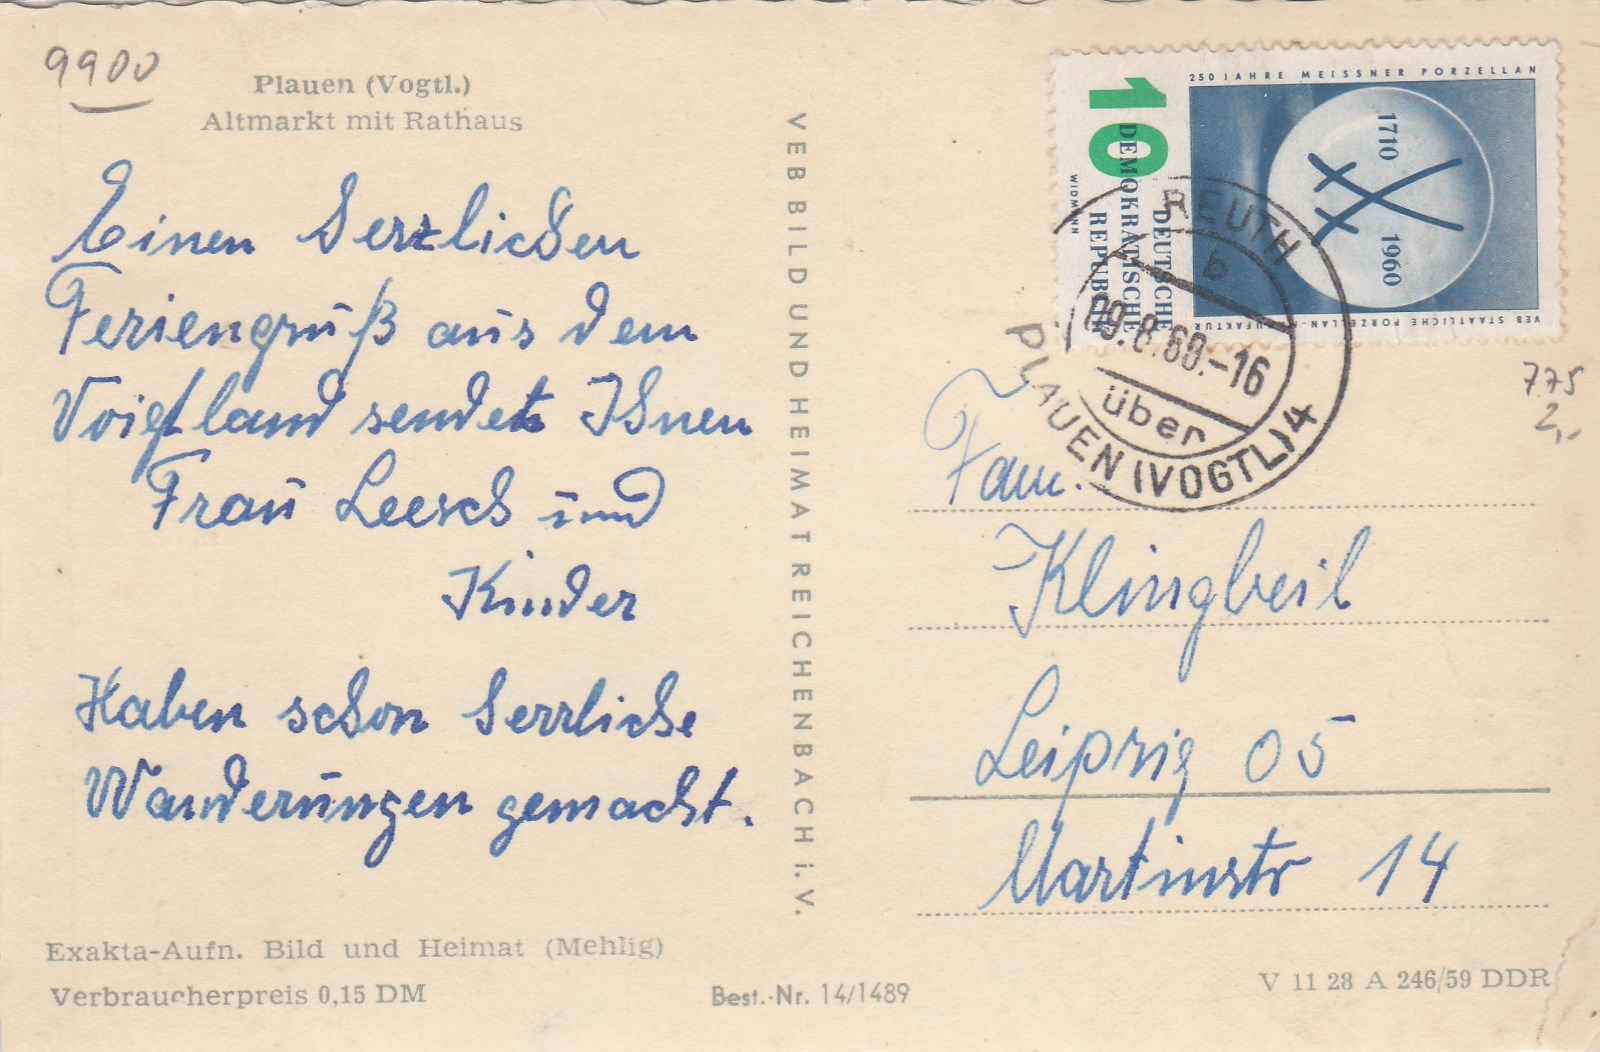 9900
Plauen (Vogtl.)
Altmarkt mit Rathaus
Einen Herzlichen
Feriengruß aus dem
Voigtland sendet Ihnen
Frau Leesch und
Kinder
Haben schon herrliche
Wanderungen gemacht.
Exakta-Aufn. Bild und Heimat (Mehlig)
Verbraucherpreis 0,15 DM
Best.-Nr. 14/1489
VEB BILD UND HEIMAT REICHENBACH i. V.
250 JAHRE MEISSNER PORZELLAN
10
DEUTSCHE
DEMOKRATISCHE
REPUBLIK
WIDMANN
1710
1960
VEB STAATLICHE PORZELLAN-MANUFAKTUR
REUTH
b
09.8.60.-16
über
PLAUEN (VOGTL) 4
775
2,-
Fam.
Klingbeil
Leipzig 05
Martinstr 14
V 11 28 A 246/59 DDR